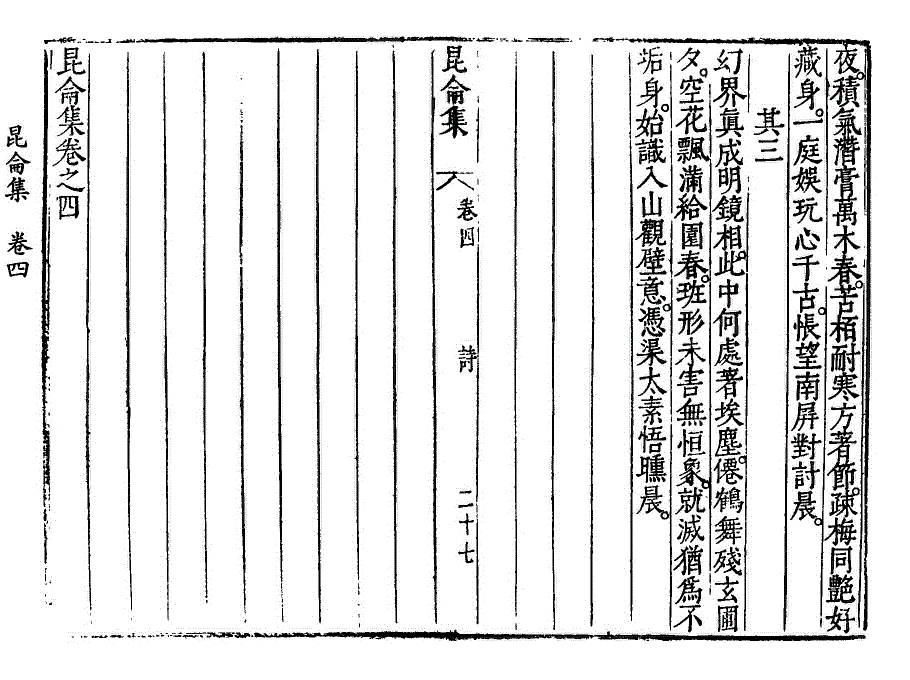 夜。積氣潛膏萬木春。苦栢耐寒方著節。疎梅同艶好
藏身。一庭娛玩心千古。悵望南屏對討晨。
其三
幻界眞成明鏡相。此中何處著埃塵。僊鶴舞殘玄圃
夕。空花飄滿給園春。班形未害無恒象。就滅猶爲不
垢身。始識入山觀壁意。憑渠太素悟曛晨。
昆侖集
卷四
詩
二十七
昆侖集卷之四
昆侖集 卷四